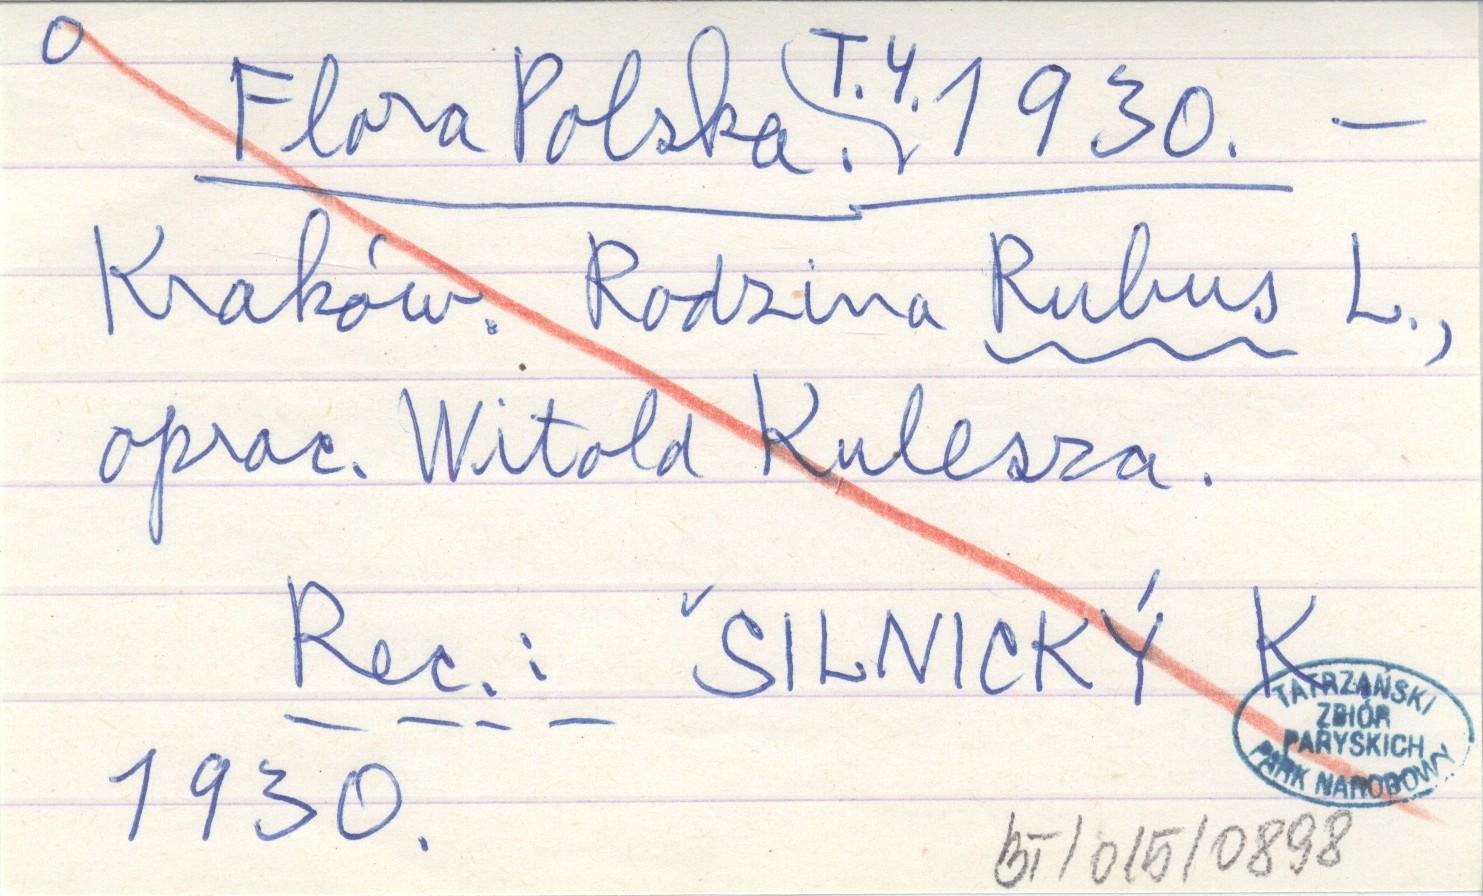 Flora Polska. T. 4. 1930. —
Kraków. Rodzina Rubus L.,
oprac. Witold Kulesza.
Rec.: ŠILNICKÝ K
1930.
TATRZAŃSKI
ZBIÓR
PARYSKICH
PARK NARODOWY
BI/015/0898